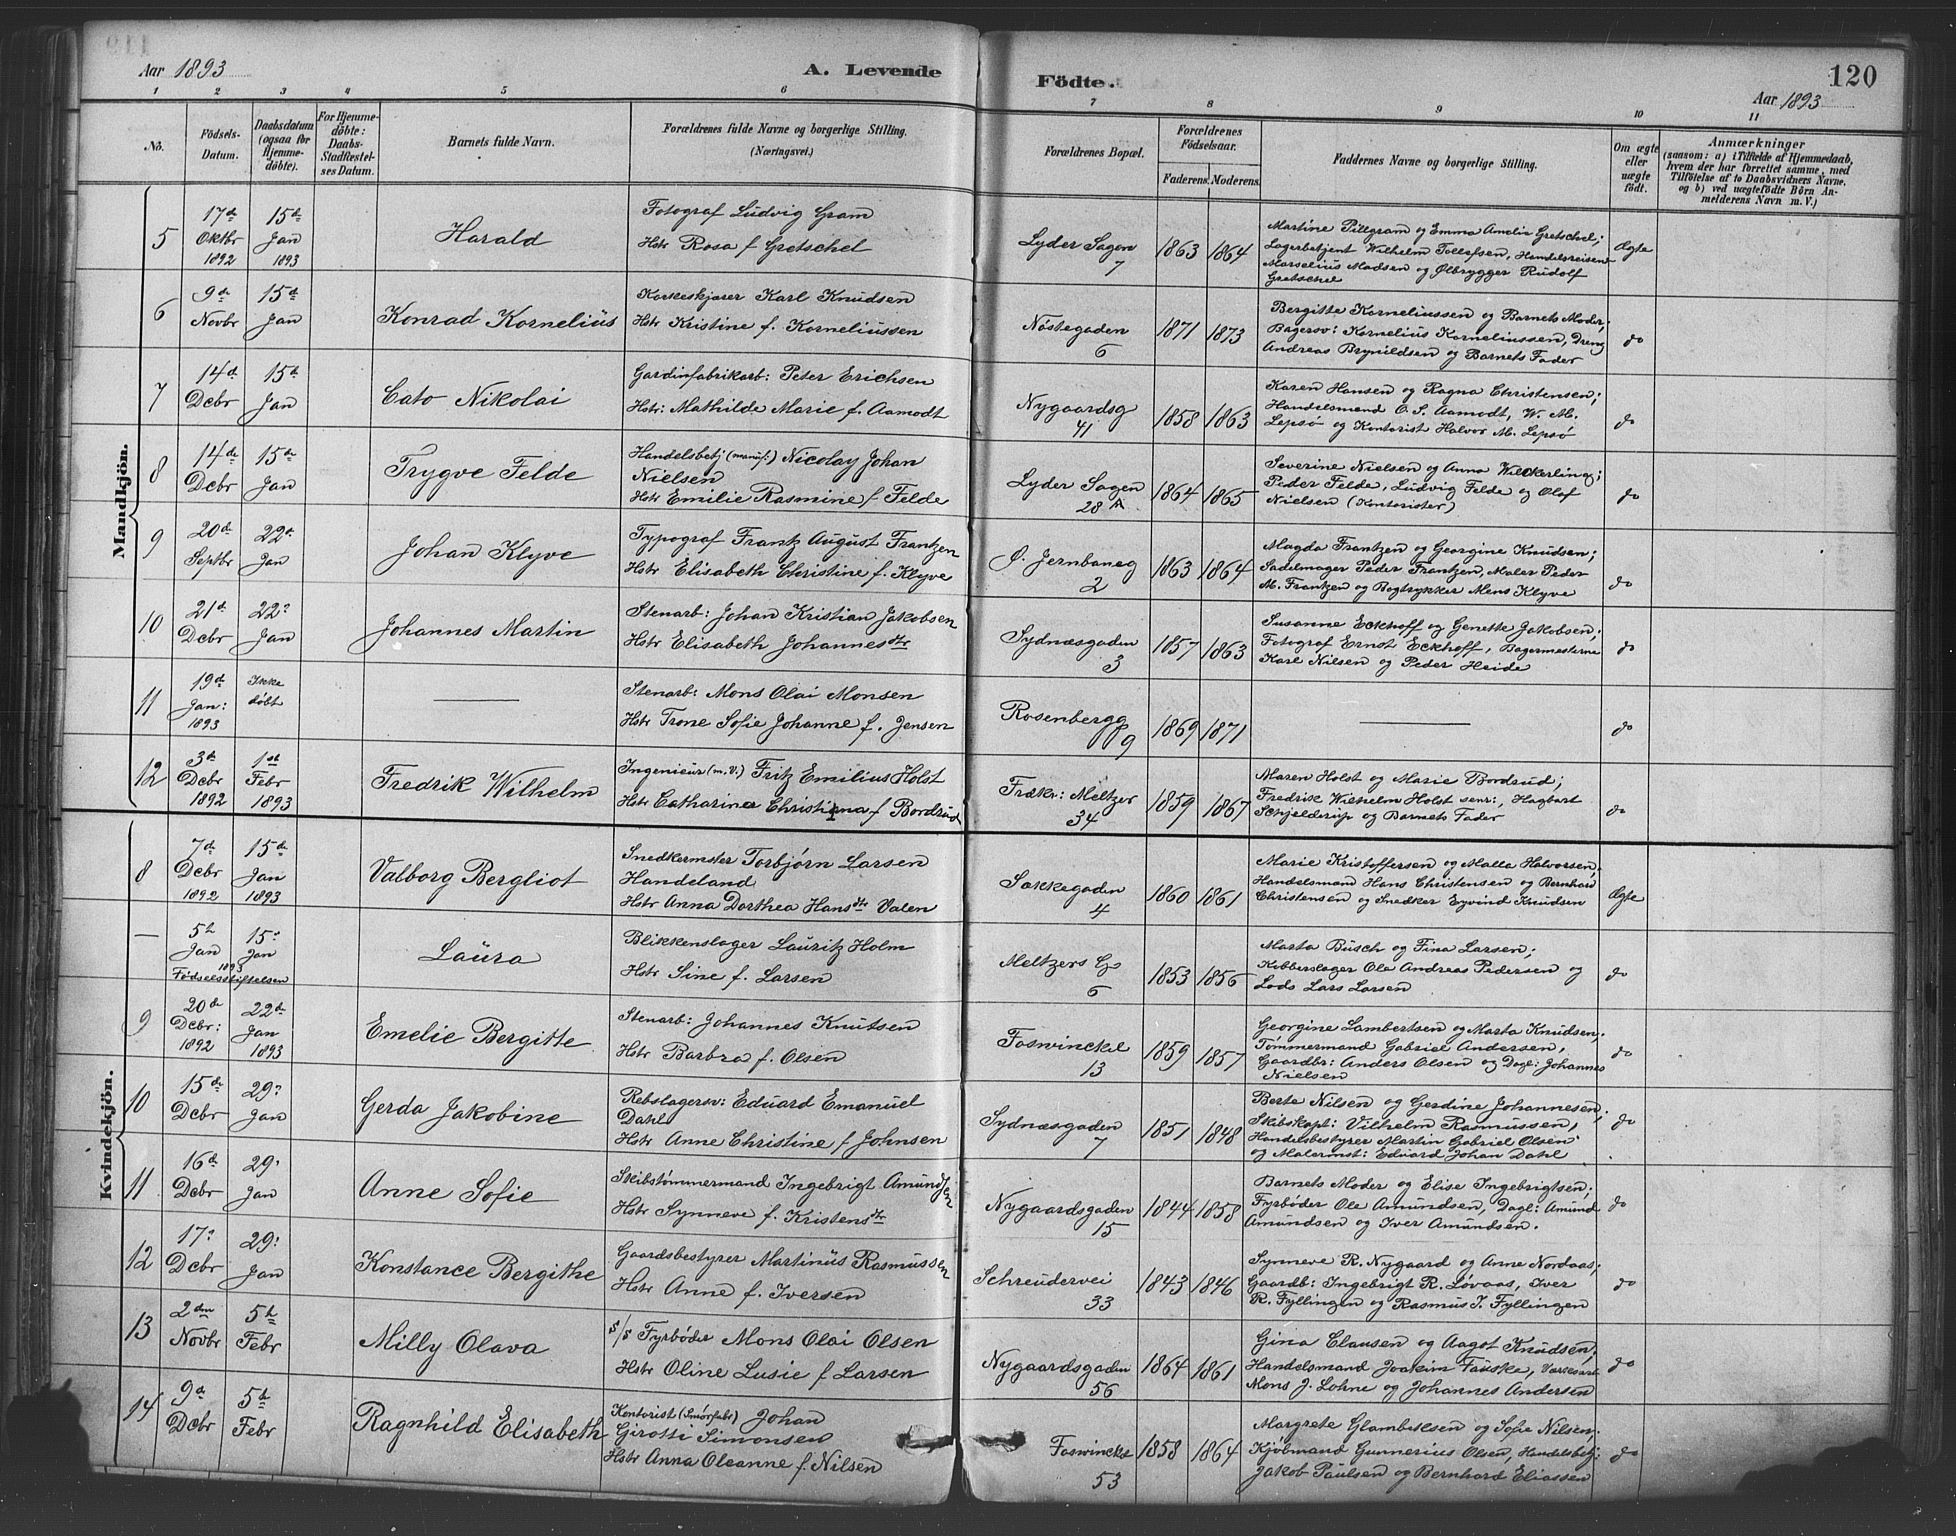 Aar 1893
A. Levende
Födte.
120
Aar 1893
1 2 3 4 5 6 7 8 9 10 11
No.
Födsels-
Datum.
Daabsdatum
(ogsaa for
Hjemme-
döbte).
For Hjemme-
döbte:
Daabs-
Stadfæstel-
ses Datum.
Barnets fulde Navn.
Forældrenes fulde Navne og borgerlige Stilling.
(Næringsvei.)
Forældrenes Bopæl.
Forældrenes
Födselsaar.
Faderens. Moderens.
Faddernes Navne og borgerlige Stilling.
Om ægte
eller
uægte
født.
Anmærkninger
(saasom: a) i Tilfælde af Hjemmedaab,
hvem der har forrettet samme, med
Tilföielse af to Daabsvidners Navne,
og b) ved uægtefödte Börn An-
melderens Navn m. V.)
Mandkjön.
5
17de
Oktbr
1892
15de
Jan
1893
Harald
Fotograf Ludvig Gram
Hstr Rosa f Gretschel
Lyder Sagen
7
1863 1864
Martine Pillgram og Emma Amelie Gretschel;
Lagerbetjent Wilhelm Tollefsen, Handelsreisend
Marselius Madsen og Ølbrygger Rudolf
Gretschel
Ægte
6
9de
Novbr
15de
Jan
Konrad Kornelius
Korkeskjærer Karl Knudsen
Hstr Kristine f. Korneliussen
Nöstegaden
6
1871 1873
Bergitte Korneliussen og Barnets Moder;
Bagersv: Kornelius Kornelinssen, Dreng
Andreas Brynildsen og Barnets Fader
do
7
14de
Dcbr
15de
Jan
Cato Nikolai
Gardinfabrikarb: Peter Erichsen
Hstr: Mathilde Marie f. Aamodt
Nygaardsg
41
1858 1863
Karen Hansen og Ragna Christensen;
Handelsmand O. S. Aamodt, W. M.
Lepsø og Kontorist Halvor M. Lepsø
do
8
14de
Dcbr
15de
Jan
Trygve Felde
Handelsbetj (manuf:) Nicolay Johan
Nielsen
Hstr Emilie Rasmine f. Felde
Lyder Sagen
28 A
1864 1865
Severine Nielsen og Anna Wilkerling;
Peder Felde, Ludvig Felde og Olaf
Nielsen (Kontorister)
do
9
20de
Septbr
22de
Jan
Johan Klyve
Typograf Frantz August Frantzen
Hstr Elisabeth Christine f. Klyve
Ø. Jernbaneg
2
1863 1864
Magda Frantzen og Georgine Knudsen;
Sadelmager Peder Frantzen, Maler Peder
M. Frantzen og Bogtrykker Mens Klyve
do
10
21de
Dcbr
22de
Jan
Johannes Martin
Stenarb: Johan Kristian Jakobsen
Hstr Elisabeth Johannesdtr
Sydnæsgaden
3
1857 1863
Susanne Eckhoff og Genette Jakobsen;
Fotograf Ernst Eckhoff, Bagermesterne
Karl Nilsen og Peder Heide
do
11
19de
Jan:
1893
Ikke
døbt
Stenarb: Mons Olai Monsen
Hstr Trone Sofie Johanne f. Jensen
Rosenbergg
9
1869 1871
do
12
3de
Dcbr
1892
1ste
Febr
1893
Fredrik Wilhelm
Ingenieur (m.V.) Fritz Emilius Holst
Hstr Catharine Christiana f Bordrud
Frækr: Meltzer
34
1859 1867
Maren Holst og Marie Bordrud;
Fredrik Wilhelm Holst senr:, Hagbart
Schjelderup og Barnets Fader
do
Kvindekjön.
8
7de
Dcbr
1892
15de
Jan
1893
Valborg Bergliot
Snedkermster Torbjørn Larsen
Handeland
Hstr Anna Dorthea Hansdtr Valen
Sækkegaden
4
1860 1861
Marie Kristoffersen og Malla Halvorsen,
Handelsmand Hans Christensen og Bernhard
Christensen og Snedker Eyvind Knudsen
Ægte
—
5te
Jan
1893
Fødselsstiftelsen
15:
Jan
Laura
Blikkenslager Lauritz Holm
Hstr Sine f. Larsen
Meltzers G
6
1853 1856
Marta Busch og Fina Larsen;
Kobberslager Ole Andreas Pedersen og
Lods Lars Larsen
do
9
20de
Dcbr:
1892
22de
Jan
1893
Emelie Bergitte
Stenarb: Johannes Knutsen
Hstr Barbra f. Olsen
Foswinckel
13
1859 1857
Georgine Lambertsen og Marta Knudsen;
Tømmermand Gabriel Andersen,
Gaardbr: Anders Olsen og Dagl: Johannes
Nielsen
do
10
15de
Dcbr
29:
Jan
Gerda Jakobine
Rebslagersv: Eduard Emanuel
Dahl
Hstr Anne Christine f Johnsen
Sydnæsgaden
7
1851 1848
Berte Nilsen og Gerdine Johannesen;
Skibskapt: Vilhelm Rasmussen,
Handelsbestyrer Martin Gabriel Olsen
og Malermst: Eduard Johan Dahl
do
11
16de
Dcbr
29:
Jan
Anne Sofie
Skibstømmermand Ingebrigt Amundsen
Hstr Synneve f. Kristensdtr
Nygaardsgaden
15
1844 1858
Barnets Moder og Elise Ingebrigtsen;
Fyrbøder Ole Amundsen, Dagl: Amund
Amundsen og Iver Amundsen.
do
12
17:
Dcbr
29:
Jan
Konstance Bergithe
Gaardsbestyrer Martinus Rasmussen
Hstr Anne f. Iversen
Schreudervei
33
1843 1846
Synneve R. Nygaard og Anne Nordaas;
Gaardb: Ingebrigt R. Løvaas, Iver
R. Fyllingen og Rasmus I. Fyllingen
do
13
2den
Novbr
5te
Febr
Milly Olava
s/s Fyrbøder Mons Olai Olsen
Hstr Oline Lusie f Larsen
Nygaardsgaden
56
1864 1861
Gina Clausen og Aagot Knudsen,
Handelsmand Joakim Fauske,
Mons J. Lohne og Johannes Andersen
do
14
9de
Dcbr
5te
Febr
Ragnhild Elisabeth
Kontorist (Smørfabr) Johan
Girotti Simonsen
Hstr Anna Oleanne f. Nilsen
Foswinckel
53
1858 1864
Margrete Glambeksen og Sofie Nilsen,
Kjøbmand Gunnerius Olsen, Handelsbetj:
Jakob Paulsen og Bernhard Eliassen
do